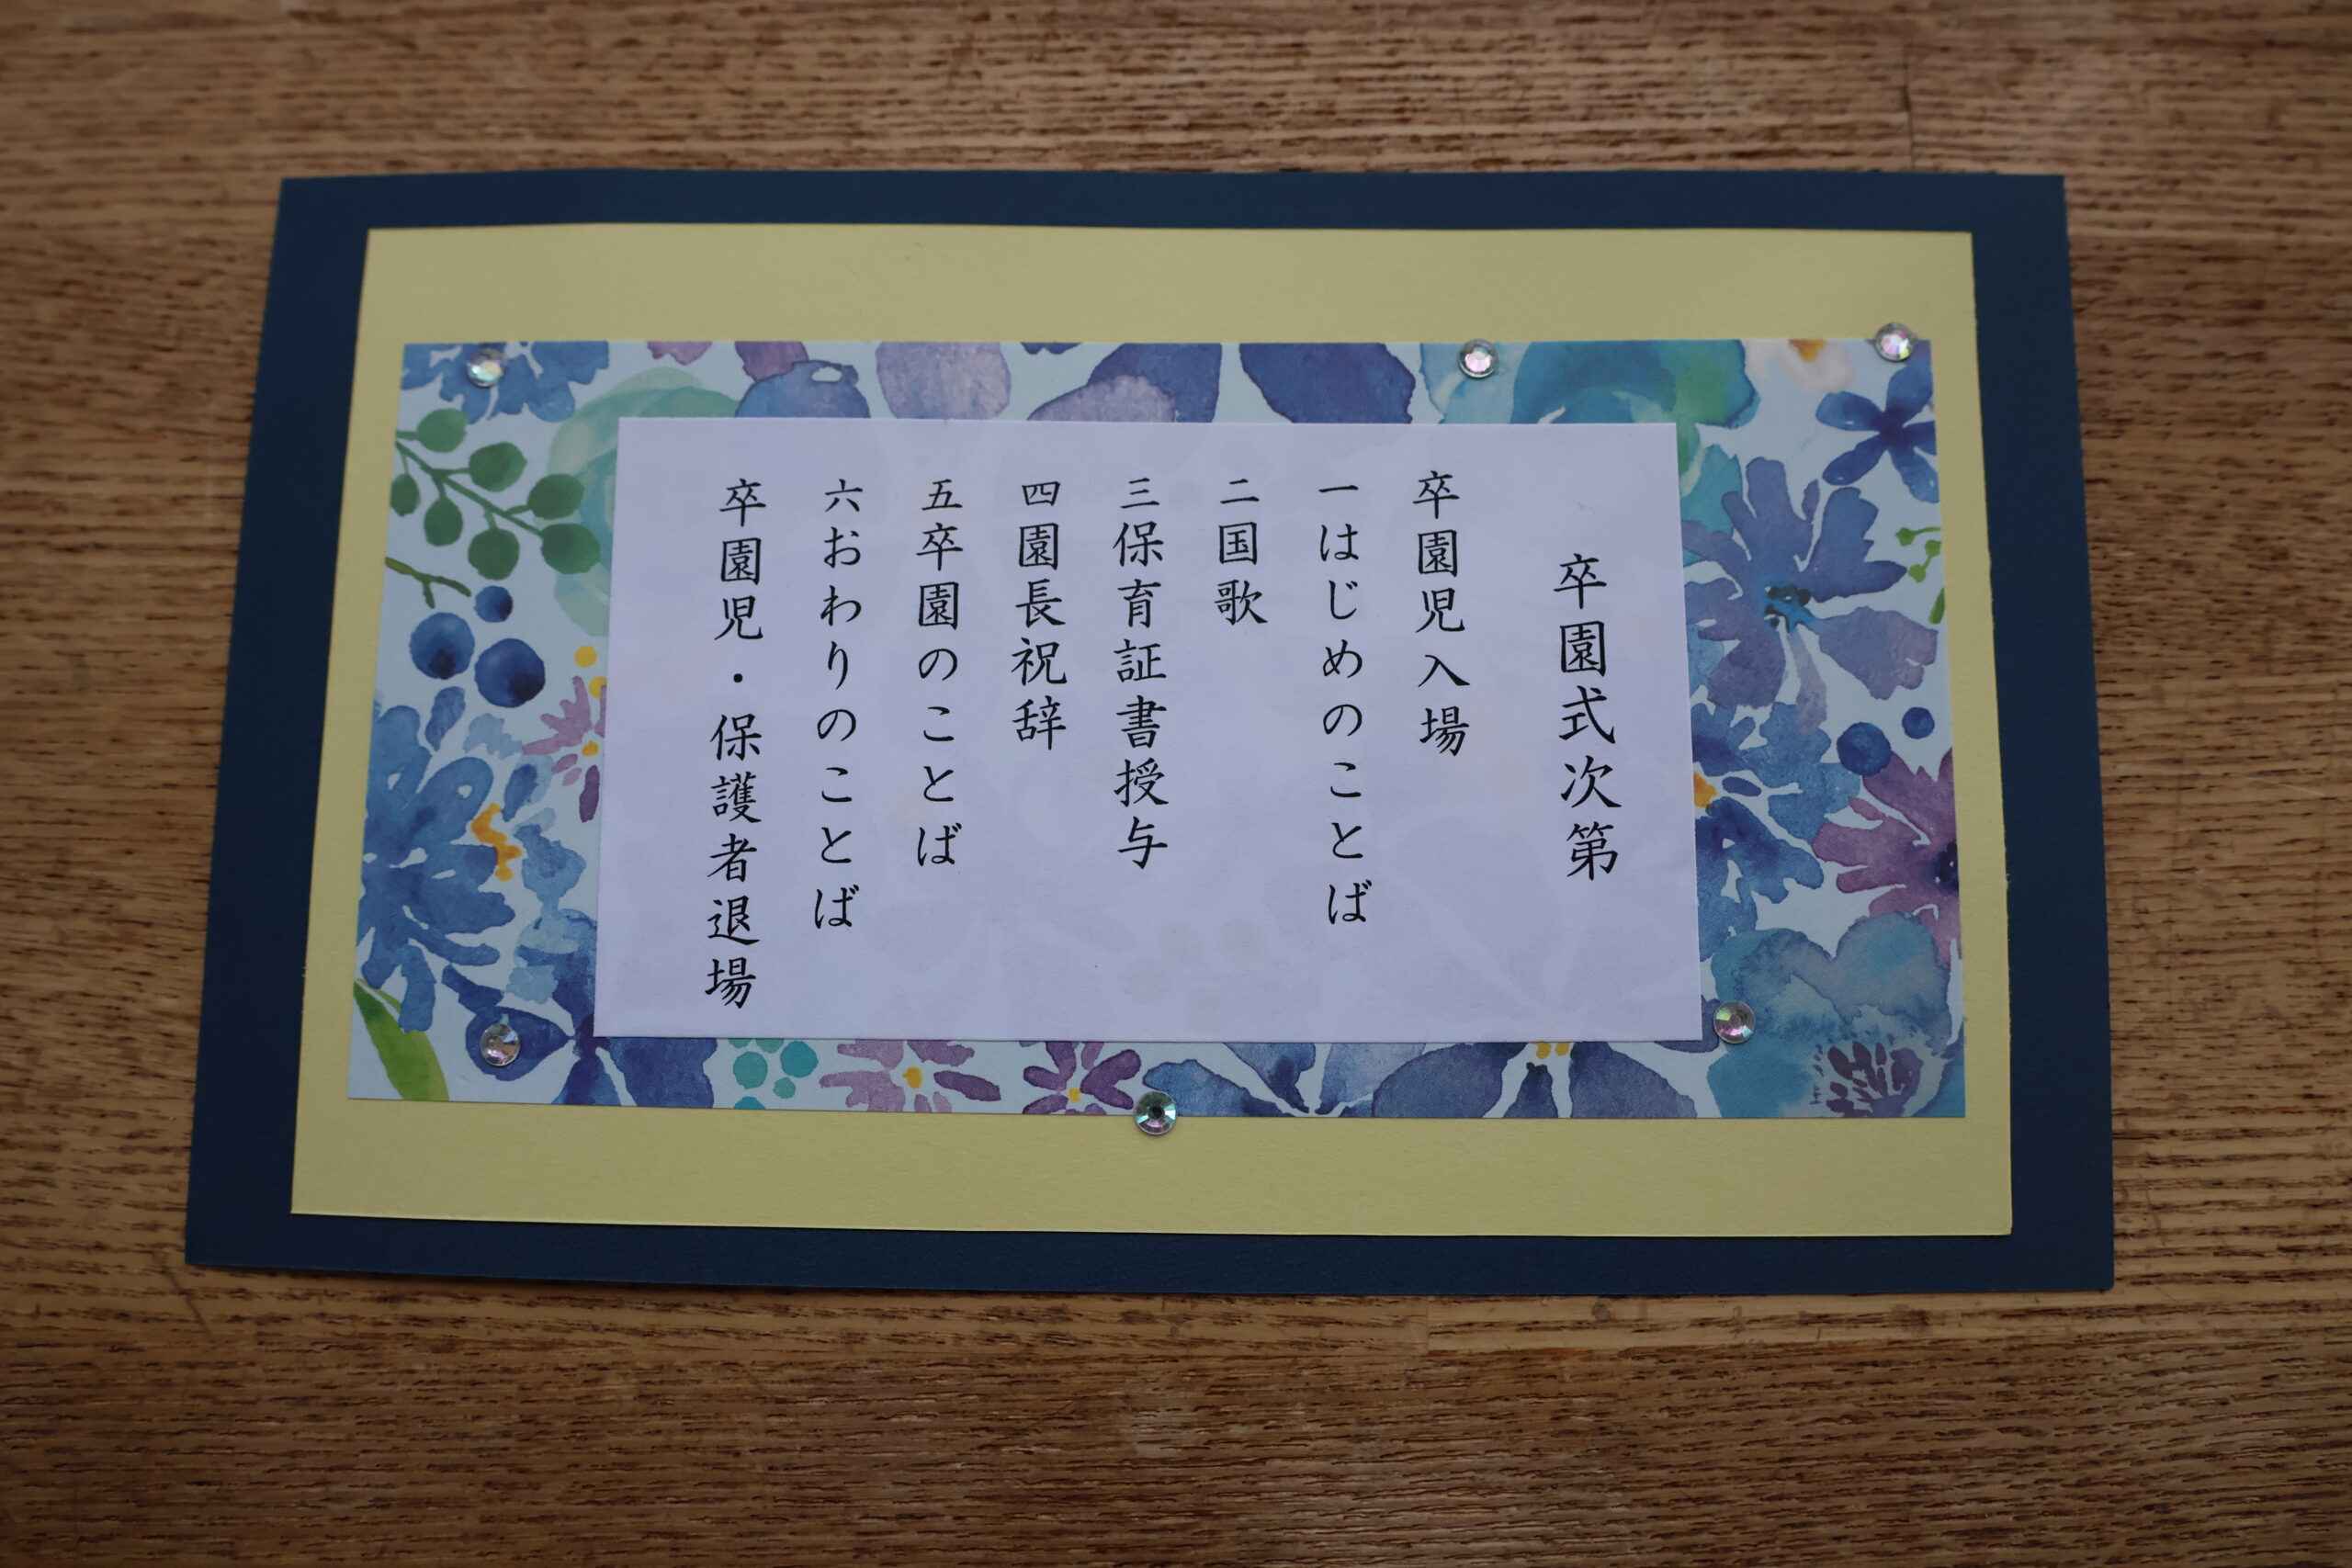 卒園式次第
卒園児入場
一はじめのことば
二国歌
三保育証書授与
四園長祝辞
五卒園のことば
六おわりのことば
卒園児・保護者退場